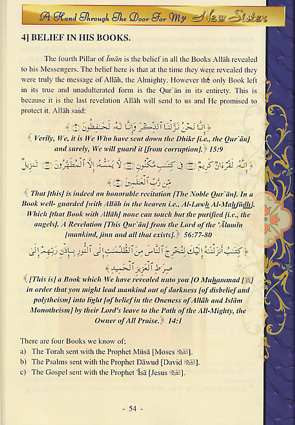 A Hand Through The Door For My New Sister
4] BELIEF IN HIS BOOKS.
The fourth Pillar of Īmān is the belief in all the Books Allāh revealed
to his Messengers. The belief here is that at the time they were revealed they
were truly the message of Allāh, the Almighty. However the only Book left
in its true and unadulterated form is the Qur'ān in its entirety. This is
because it is the last revelation Allāh will send to us and He promised to
protect it. Allāh said:
﴿ إِنَّا نَحْنُ نَزَّلْنَا ٱلذِّكْرَ وَإِنَّا لَهُۥ لَحَـٰفِظُونَ ﴾
﴾ Verily, We, it is We Who have sent down the Dhikr [i.e., the Qur'ān]
and surely, We will guard it [from corruption] ﴿ 15:9
﴿ إِنَّهُۥ لَقُرْءَانٌ كَرِيمٌ فِى كِتَـٰبٍ مَّكْنُونٍ لَّا يَمَسُّهُۥٓ إِلَّا ٱلْمُطَهَّرُونَ تَنزِيلٌ
مِّن رَّبِّ ٱلْعَـٰلَمِينَ ﴾
﴾ That [this] is indeed an honorable recitation [The Noble Qur'ān]. In a
Book well- guarded [with Allāh in the heaven i.e., Al-Lawh Al-Mahfūdh].
Which [that Book with Allāh] none can touch but the purified [i.e., the
angels]. A Revelation [This Qur'ān] from the Lord of the 'Ālamīn
[mankind, jinn and all that exists]. ﴿ 56:77-80
﴿ كِتَـٰبٌ أَنزَلْنَـٰهُ إِلَيْكَ لِتُخْرِجَ ٱلنَّاسَ مِنَ ٱلظُّلُمَـٰتِ إِلَى ٱلنُّورِ بِإِذْنِ رَبِّهِمْ إِلَىٰ
صِرَٰطِ ٱلْعَزِيزِ ٱلْحَمِيدِ ﴾
﴾ [This is] a Book which We have revealed unto you [O Muhammad [ﷺ]
in order that you might lead mankind out of darkness [of disbelief and
polytheism] into light [of belief in the Oneness of Allāh and Islām
Monotheism] by their Lord's leave to the Path of the All-Mighty, the
Owner of All Praise. ﴿ 14:1
There are four Books we know of;
a) The Torah sent with the Prophet Mūsā [Moses].
b) The Psalms sent with the Prophet Dāwud [David].
c) The Gospel sent with the Prophet 'Īsā [Jesus].
- 54 -